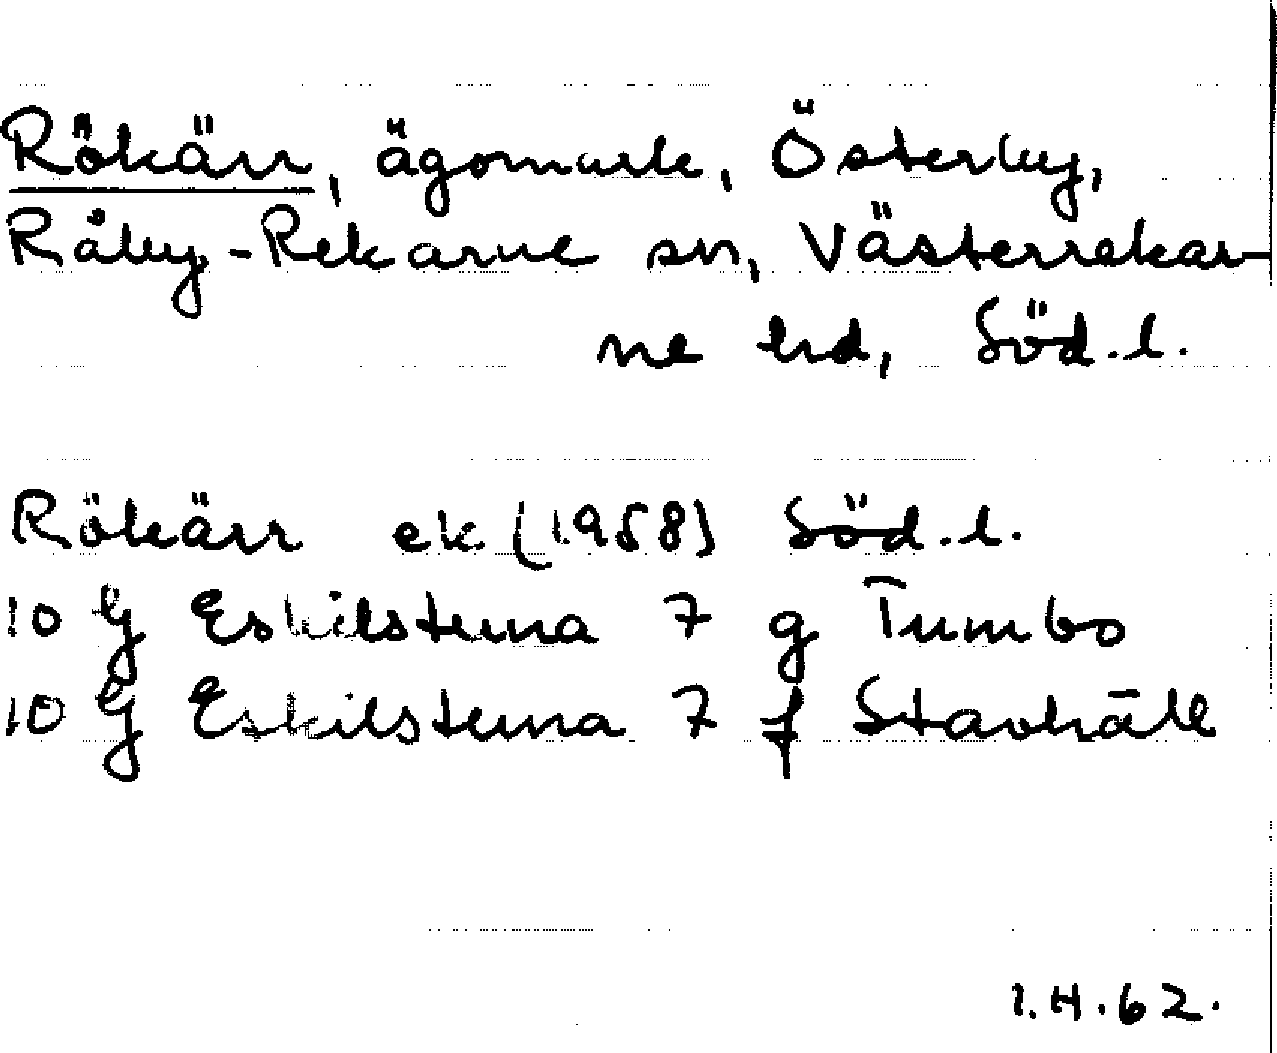 Rökärr, ägomark, Österby,
Råby-Rekarne sn, Västerrekar-
ne hd, Söd.l.
Rökärr ek (1958) Söd.l.
10 G Eskilstuna 7 g Tumbo
10 G Eskilstuna 7 f Stavhäll
I.H.62.